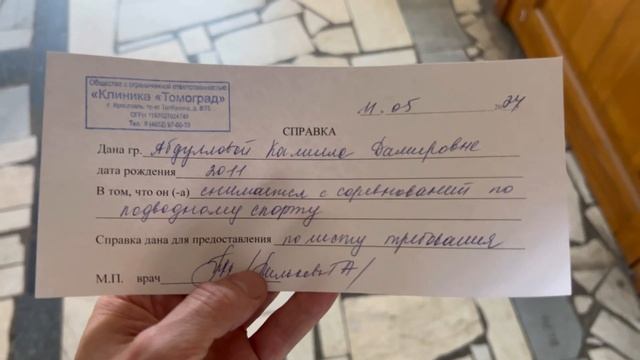 Общество с ограниченной ответственностью
«Клиника «Томоград»
г. Ярославль, пр-кт
Тел. 8 (4852)
11.05 2024
СПРАВКА
Дана гр. Абдулловой Камилле Дамировне
дата рождения 2011
В том, что он (-а) снимается с соревнований по
подводному спорту
Справка дана для предоставления по месту требования
М.П. врач